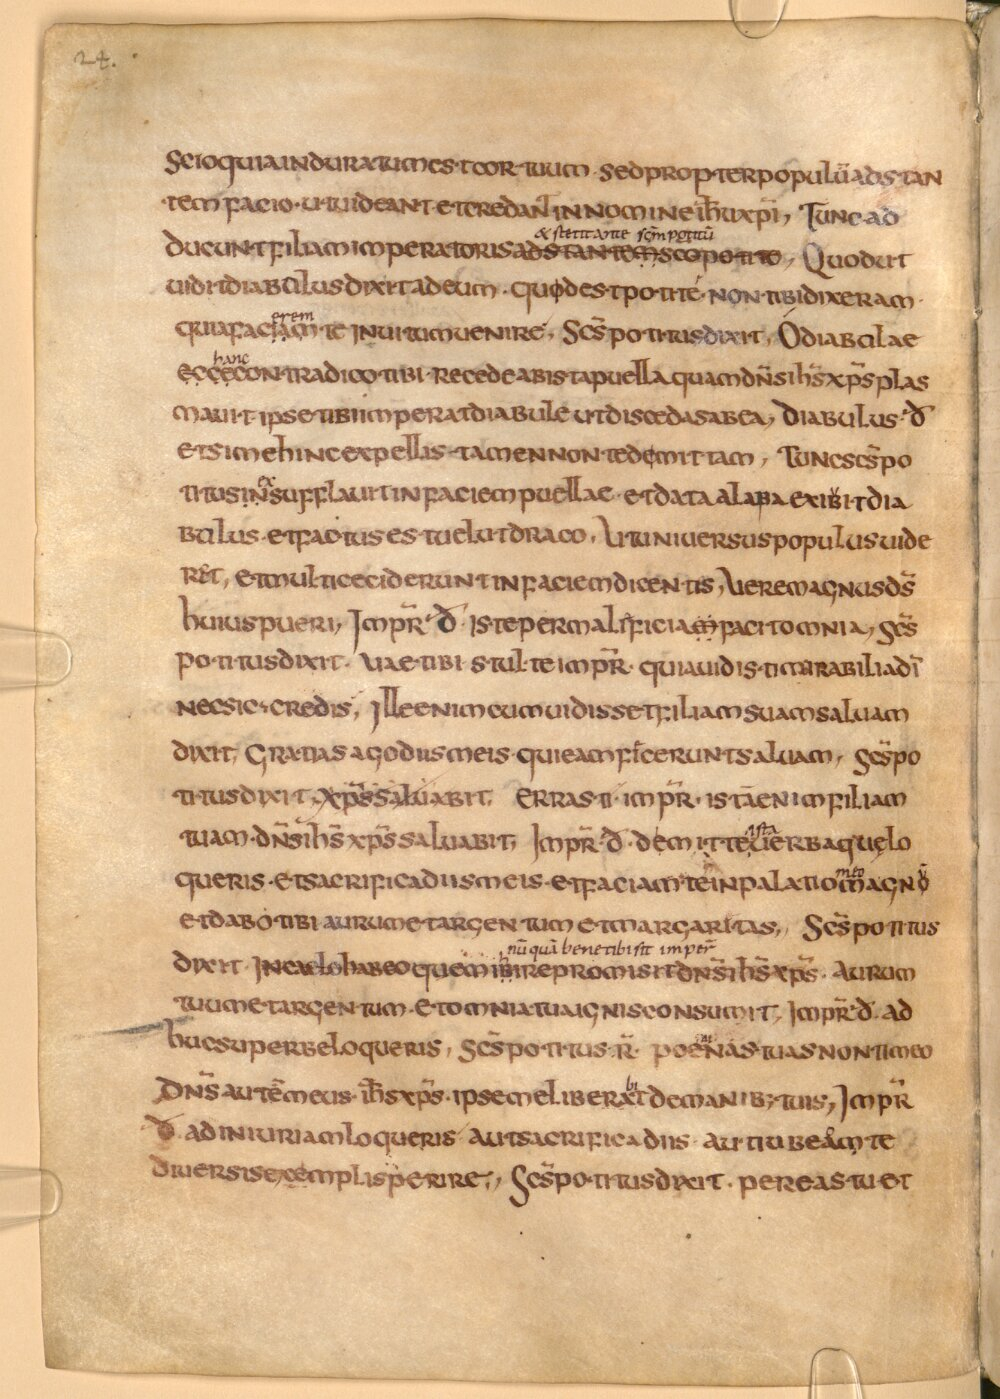 24.
Scio quia induratum est cor tuum · sed propter populū adstan
tem facio · ut uideant et credant in nomine ihū xpi, Tunc ad
& stetit ante scm̄ potitū
ducunt filiam imperatoris adstantem sco potito, Quod ut
uidit diabulus dixit ad eum · quod est potite · non tibi dixeram ·
erem
quia faciam te inuitum uenire, Scs̄ potitus dixit, O diabulae
hanc
ecce contradico tibi · recede ab ista puella quam dn̄s ihs̄ xps̄ plas
mauit ipse tibi imperat diabule ut discedas ab ea, diabulus · d̄
etsi me hinc expellis · tamen non te demittam, Tunc scs̄ po
ex
titus insufflauit in faciem puellae · et data alapa exibit dia
bulus · et factus est uelut draco · Ut uniuersus populus uide
ret, et multi ceciderunt in faciem dicentis, Uere magnus ds̄
huius pueri, Impr̄ · d̄ iste per maleficia facit omnia, scs̄
potitus dixit · uae tibi stulte impr̄ · quia uidisti mirabilia dī
nec sic credis, Ille enim cum uidisset filiam suam saluam
dixit, Gratias ago diis meis · qui eam fecerunt saluam, scs̄ po
titus dixit, xps̄ saluabit. Errasti impr̄ · ista enim filiam
tuam · dn̄s ihs̄ xps̄ saluabit, Impr̄ · d̄ · demitte uerba que lo
ista
queris · et sacrifica diis meis · et faciam te in palatio magno
meo
et dabo tibi aurum et argentum et margaritas, Scs̄ potitus
nū quā bene tibi sit imper̄
dixit · In caelo habeo quem ibi repromisit dn̄s ihs̄ xps̄ · aurum
tuum et argentum · et omnia tua ignis consumit, Impr̄ d̄ · ad
huc superbe loqueris, scs̄ potitus · r̄ · poenas tuas non timeo
bi
Dn̄s autē meus · ihs̄ xps̄ · ipse me liberat de manib; tuis, Impr̄
d̄ · ad iniuriam loqueris aut sacrifica diis · aut iubeam te
diuersis exemplis perire, Scs̄ potitus dixit · pereas tu et